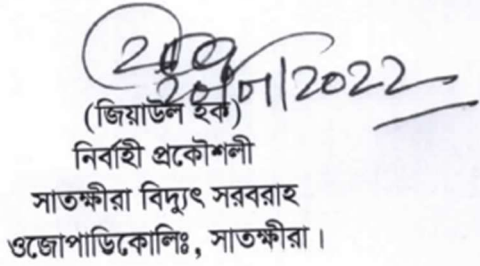 (জিয়াউল হক)
নির্বাহী প্রকৌশলী
সাতক্ষীরা বিদ্যুৎ সরবরাহ
ওজোপাডিকোলিঃ, সাতক্ষীরা।